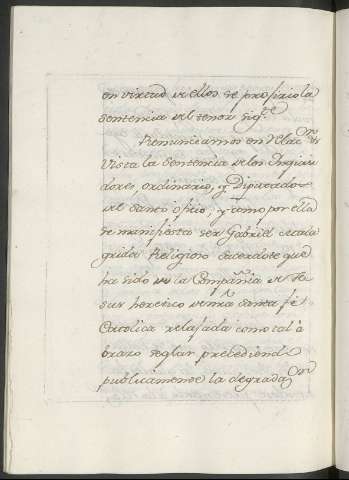 en virtud de ellos se profirio la
sentencia del tenor sig.te
Pronunciamos en Relac.on
Vista la sentencia de los Inquisi
dores, ordinario, y Diputados
del santo oficio; y como por ella
se manifiesta ser Gabriel Mala
grida Religioso sacerdote que
ha sido de la Compañia de Je
sus heretico de nra santa fé
Catolica relajada como tal à
brazo seglar precediendo
publicamense la degradac.on